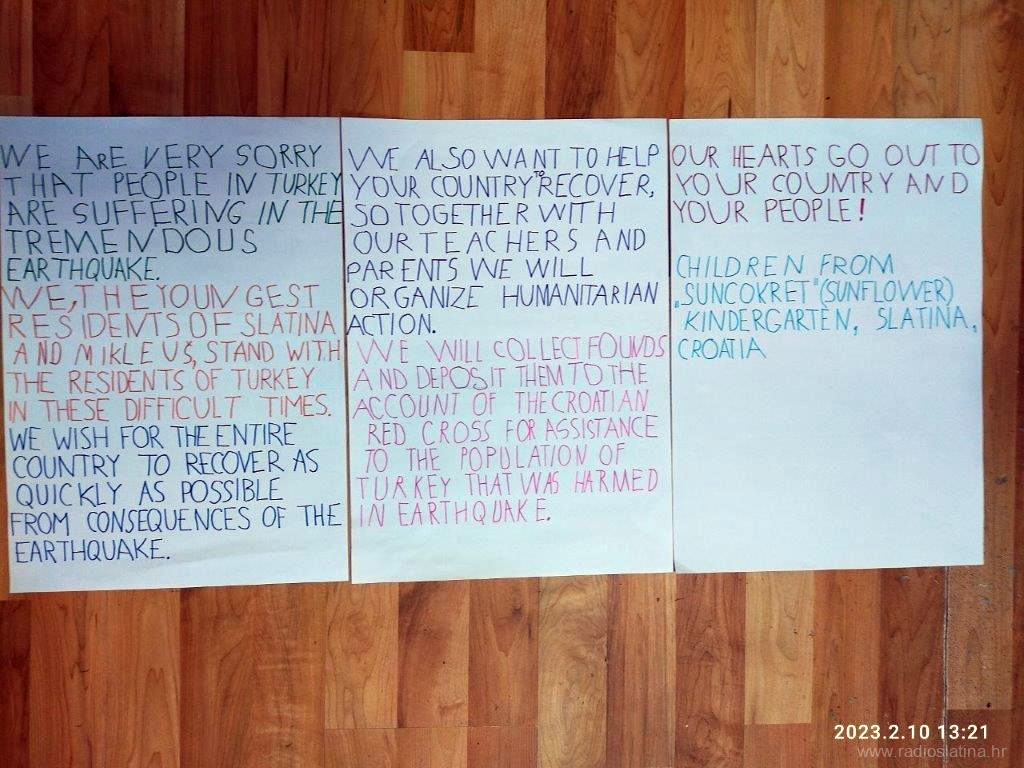 WE ARE VERY SORRY
THAT PEOPLE IN TURKEY
ARE SUFFERING IN THE
TREMENDOUS
EARTHQUAKE.
WE, THE YOUNGEST
RESIDENTS OF SLATINA
AND MIKLEUŠ, STAND WITH
THE RESIDENTS OF TURKEY
IN THESE DIFFICULT TIMES.
WE WISH FOR THE ENTIRE
COUNTRY TO RECOVER AS
QUICKLY AS POSSIBLE
FROM CONSEQUENCES OF THE
EARTHQUAKE.
WE ALSO WANT TO HELP
YOUR COUNTRY TO RECOVER,
SO TOGETHER WITH
OUR TEACHERS AND
PARENTS WE WILL
ORGANIZE HUMANITARIAN
ACTION.
WE WILL COLLECT FOUNDS
AND DEPOSIT THEM TO THE
ACCOUNT OF THE CROATIAN
RED CROSS FOR ASSISTANCE
TO THE POPULATION OF
TURKEY THAT WAS HARMED
IN EARTHQUAKE.
OUR HEARTS GO OUT TO
YOUR COUNTRY AND
YOUR PEOPLE!
CHILDREN FROM
„SUNCOKRET" (SUNFLOWER)
KINDERGARTEN, SLATINA,
CROATIA
2023.2.10 13:21
www.radioslatina.hr